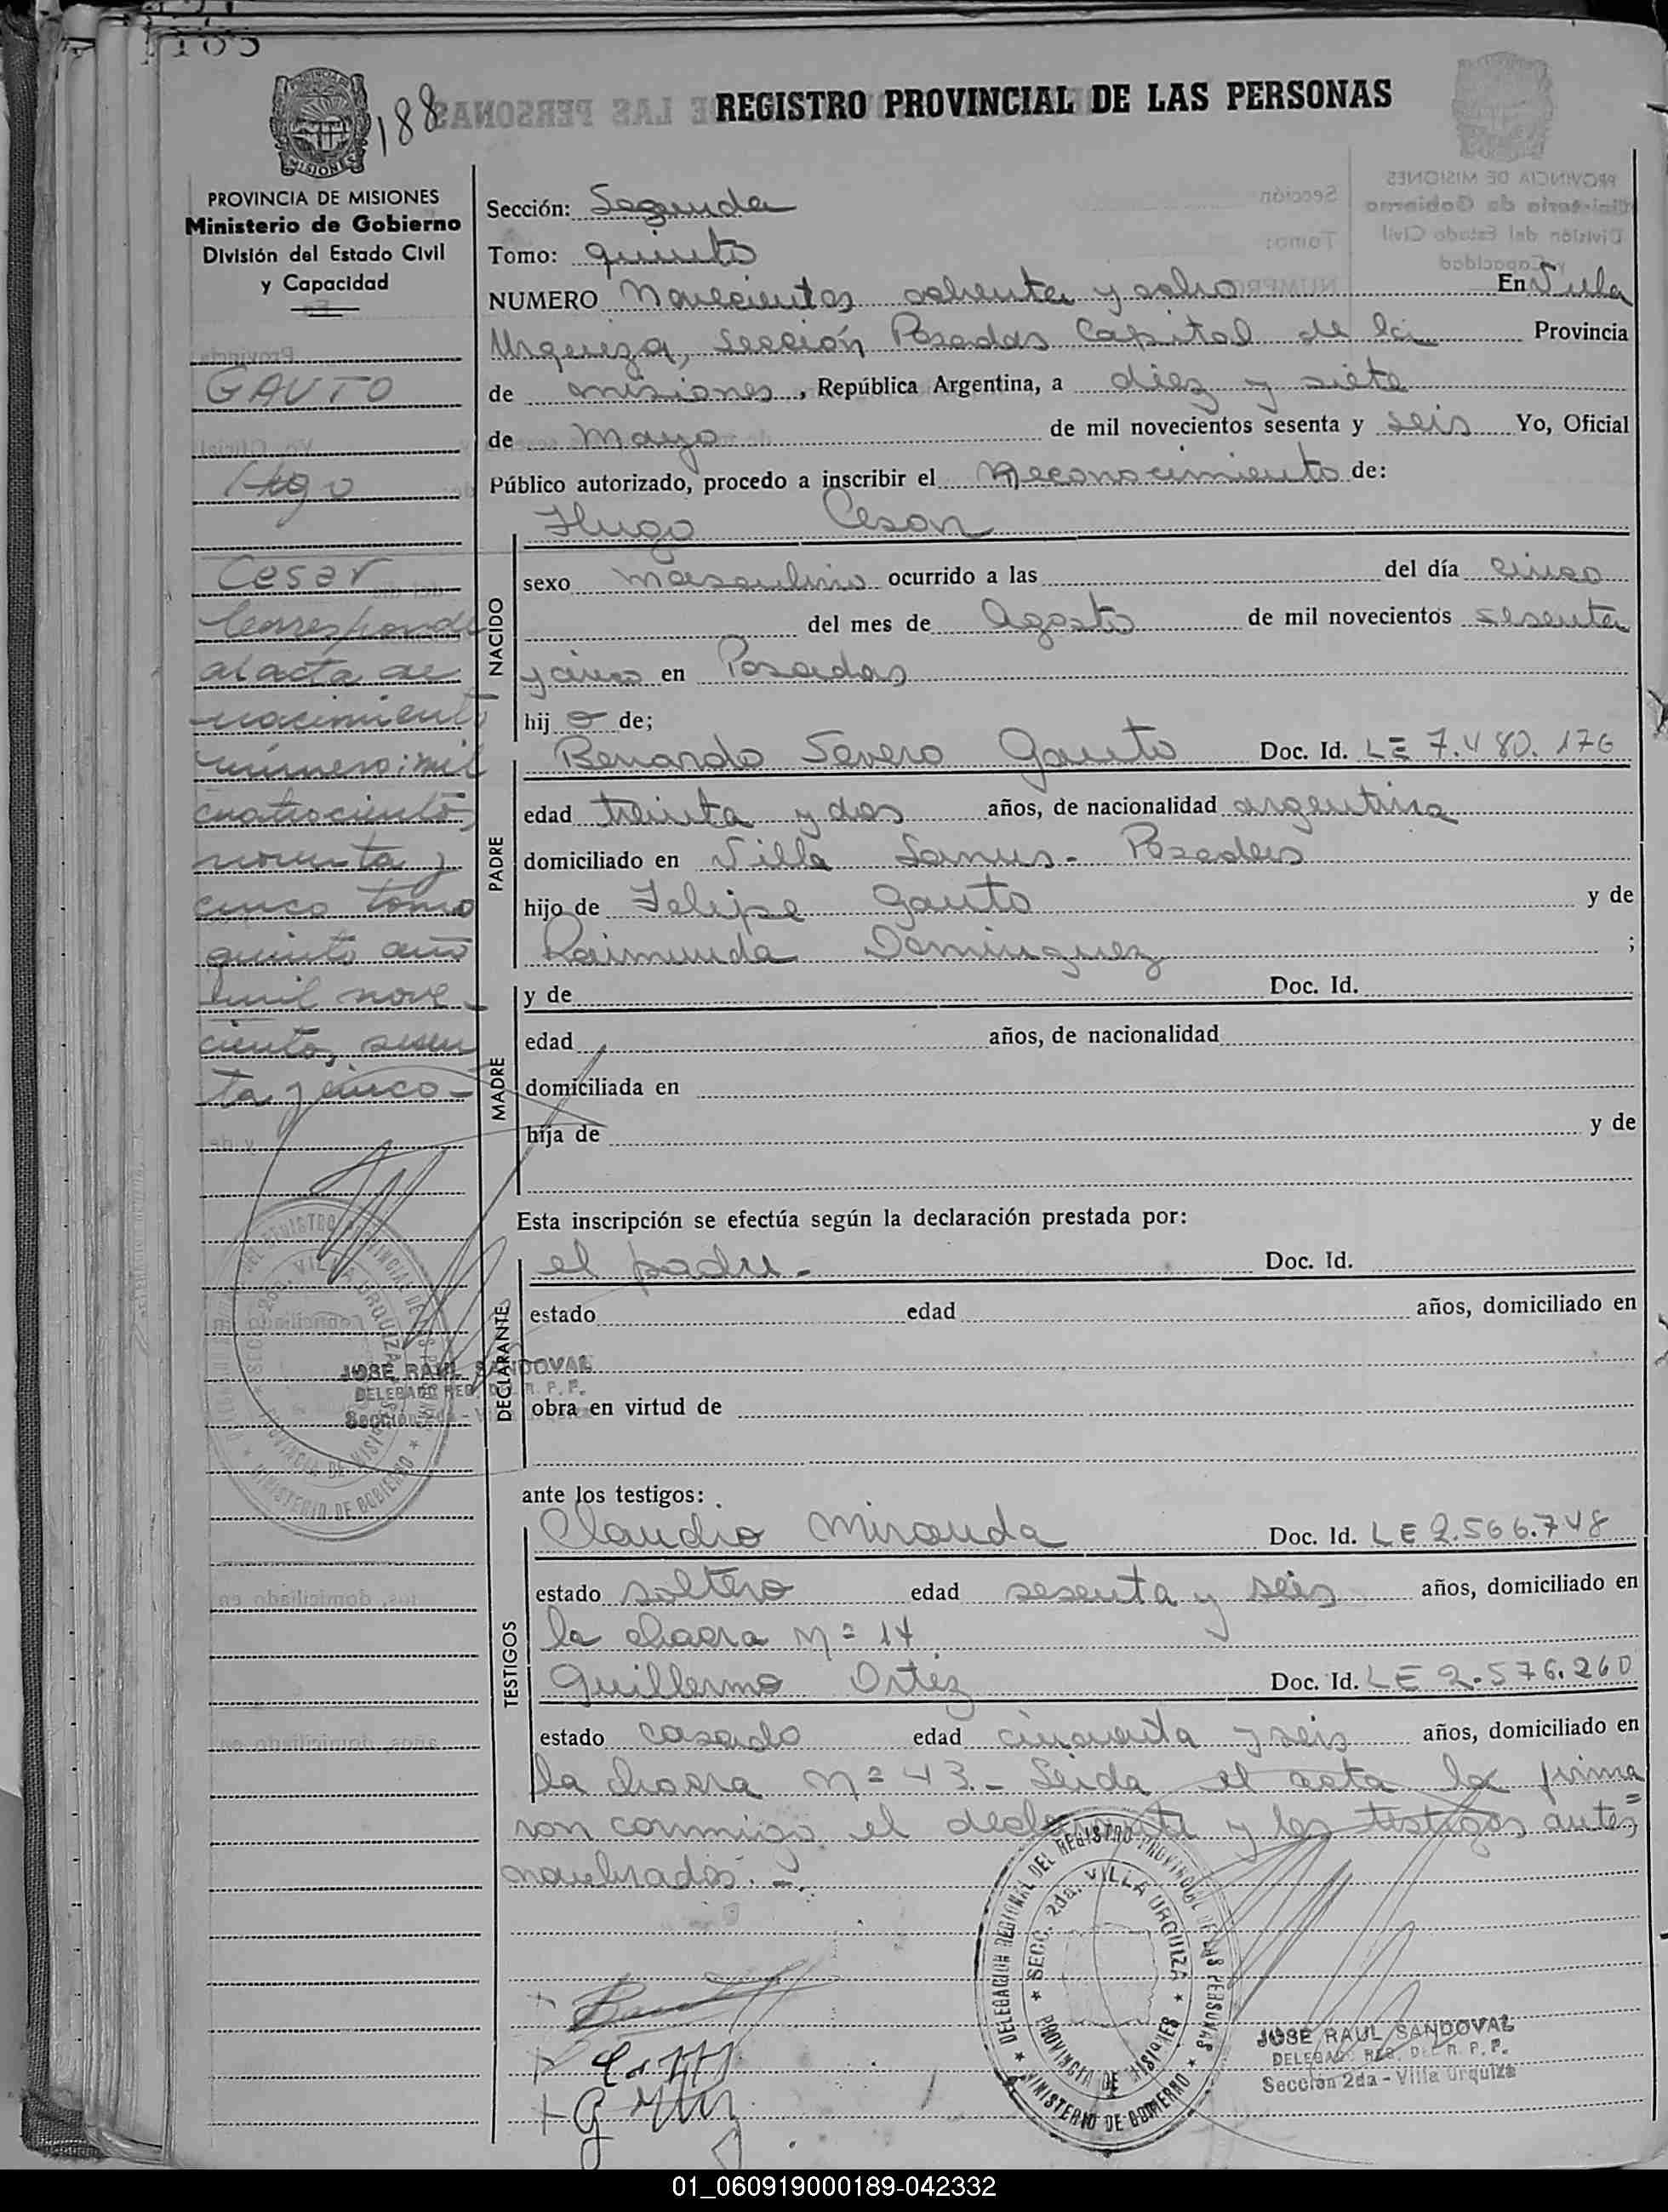 188
REGISTRO PROVINCIAL DE LAS PERSONAS
PROVINCIA DE MISIONES
Ministerio de Gobierno
División del Estado Civil
y Capacidad
GAUTO
Hugo
Cesar
Corresponde
al acta de
nacimiento
número: mil
cuatrocientos
noventa y
cinco tomo
quinto año
mil nove-
cientos sesen
ta y cinco-
JOSE RAUL SANDOVAL
DELEGADO REG. DEL R. P. P.
Sección 2da - Villa Urquiza
Sección: Segunda
Tomo: quinto
NUMERO Novecientos ochenta y ocho En Villa
Urquiza, Sección Posadas Capital de la Provincia
de misiones, República Argentina, a diez y siete
de Mayo de mil novecientos sesenta y seis Yo, Oficial
Público autorizado, procedo a inscribir el Reconocimiento de:
Hugo Cesar
NACIDO
sexo masculino ocurrido a las del día cinco
del mes de Agosto de mil novecientos sesenta
y cinco en Posadas
hij o de;
PADRE
Bernardo Severo Gauto Doc. Id. LE 7.480.176
edad treinta y dos años, de nacionalidad argentina
domiciliado en Villa Lanus- Posadas
hijo de Felipe Gauto y de
Raimunda Dominguez ;
MADRE
y de Doc. Id.
edad años, de nacionalidad
domiciliada en
hija de y de
Esta inscripción se efectúa según la declaración prestada por:
DECLARANTE
el padre- Doc. Id.
estado edad años, domiciliado en
obra en virtud de
ante los testigos:
TESTIGOS
Claudio Miranda Doc. Id. LE 2.566.748
estado soltero edad sesenta y seis años, domiciliado en
la chacra Nº 14
Guillermo Ortiz Doc. Id. LE 2.576.260
estado casado edad cincuenta y seis años, domiciliado en
la chacra Nº 43.- Leida el acta la firma
ron conmigo el declarante y los testigos antes
nombrados.-
DELEGACION REGIONAL DEL REGISTRO PROVINCIAL DE LAS PERSONAS
SECC. 2da. VILLA URQUIZA
PROVINCIA DE MISIONES
MINISTERIO DE GOBIERNO
JOSE RAUL SANDOVAL
DELEGADO REG. DEL R. P. P.
Sección 2da - Villa Urquiza
01_060919000189-042332